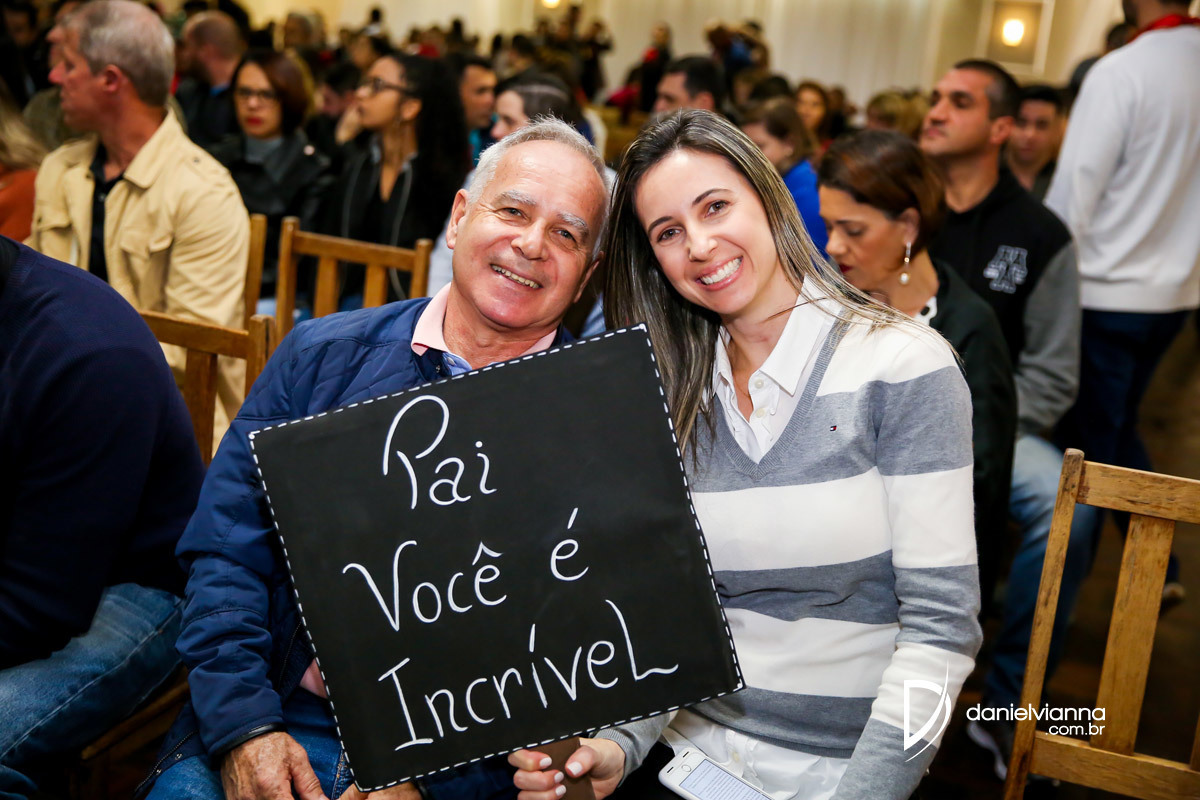 Pai
Você é
Incrível
danielvianna
.com.br